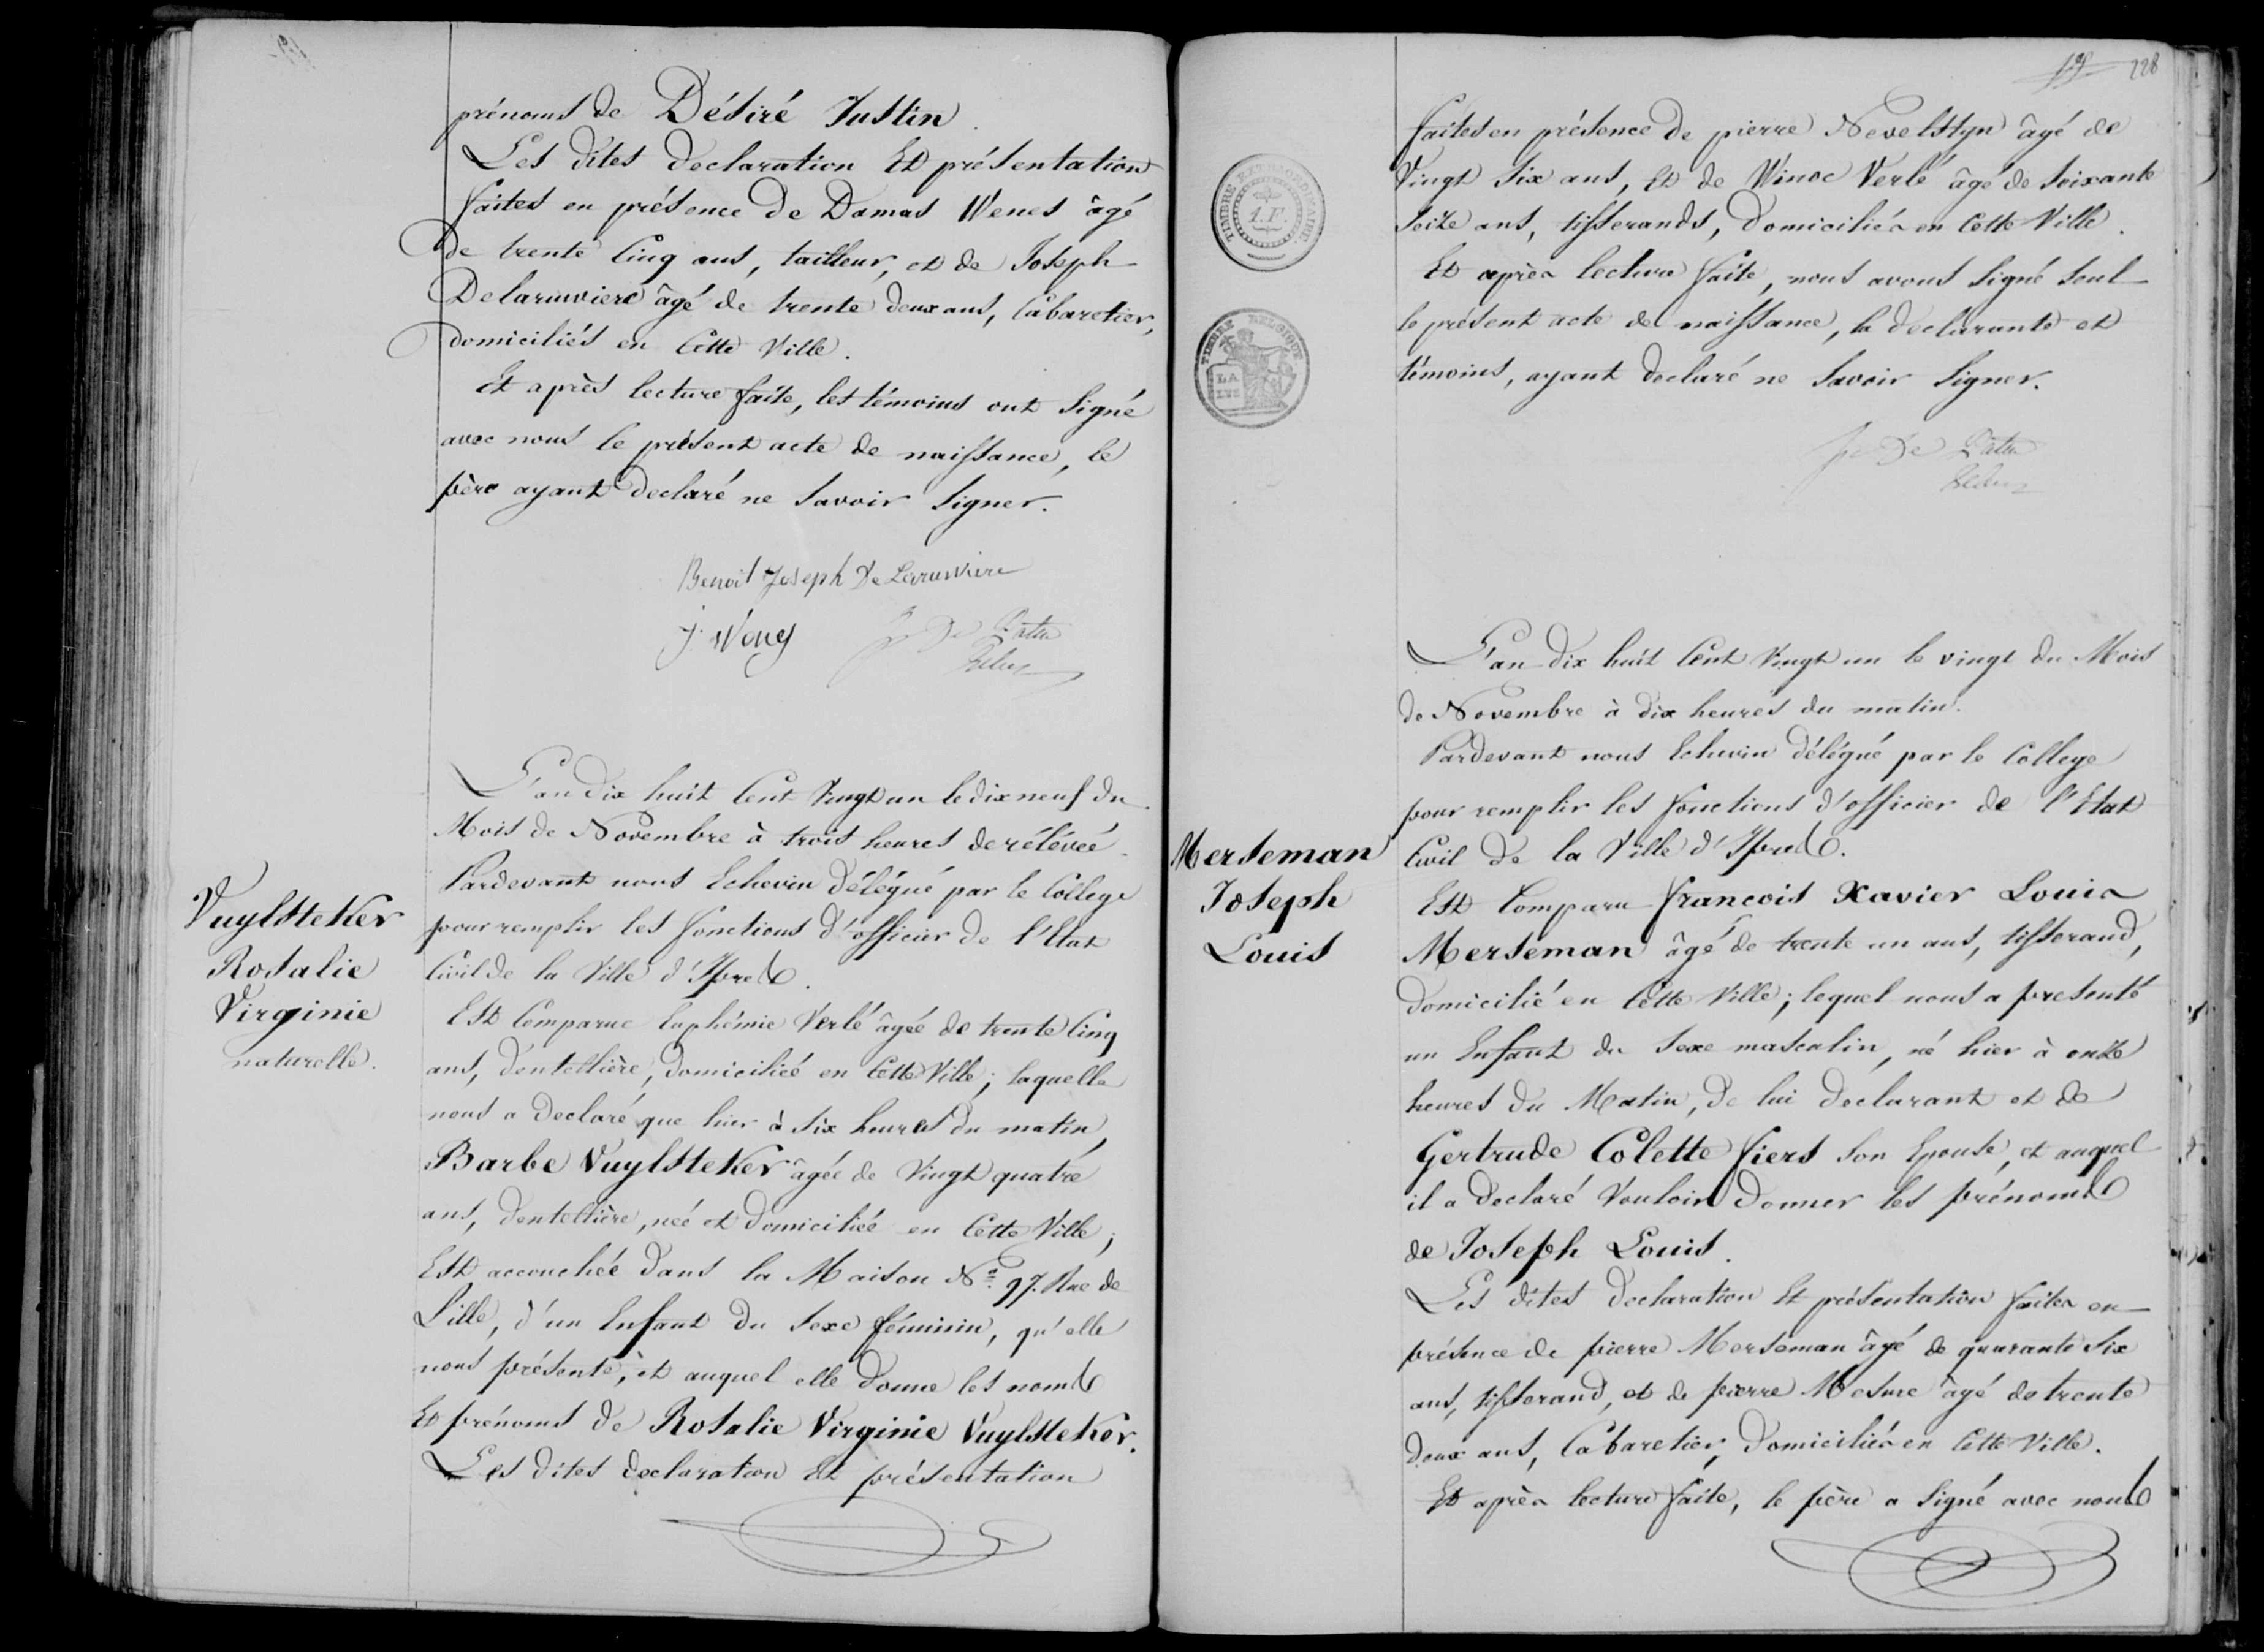 prénoms de Désiré Justin.
Les dites declaration Et présentation
faites en présence de Damas Wenes âgé
de trente Cinq ans, tailleur, et de Joseph
Delaruwiere âgé de trente deux ans, Cabaretier,
domiciliés en Cette Ville.
Et après lecture faite, les témoins ont signé
avec nous le présent acte de naissance, le
père ayant declaré ne savoir signer.
Benoit Joseph De Laruwiere
J. Weney
L'an dix huit Cent Vingt un le dix neuf du
Mois de Novembre à trois heures de rélévée.
Pardevant nous Echevin délégué par le College
pour remplir les fonctions d'officier de l'Etat
Civil de la Ville d'Ipres.
Vuylsteker
Rosalie
Virginie
naturelle.
Est Comparue Euphémie Verlé âgée de trente Cinq
ans, dentellière, domiciliée en Cette Ville; laquelle
nous a declaré que hier à six heures du matin,
Barbe Vuylsteker âgée de Vingt quatre
ans, dentellière, née et domiciliée en Cette Ville;
Est accouchée dans la Maison No. 97. Rue de
Lille, d'un Enfant du sexe féminin, qu'elle
nous présente, et auquel elle donne les noms
Et prénoms de Rosalie Virginie Vuylsteker.
Les dites declaration Et présentation
19 228
faites en présence de pierre Nevelstyn âgé de
Vingt six ans, Et de Winoc Verlé âgé de soixante
seize ans, tisserands, domiciliés en Cette Ville.
Et après lecture faite, nous avons signé seul
le présent acte de naissance, la declarante et
témoins, ayant declaré ne savoir signer.
TIMBRE EXTRAORDINAIRE.
1.F.
TIMBRE BELGIQUE
LA
LYS
L'an dix huit Cent Vingt un le vingt du Mois
de Novembre à dix heures du matin.
Pardevant nous Echevin délégué par le College
pour remplir les fonctions d'officier de l'Etat
Civil de la Ville d'Ipres.
Merseman
Joseph
Louis
Est Comparu francois Xavier Louis
Merseman âgé de trente un ans, tisserand,
domicilié en Cette Ville; lequel nous a presenté
un Enfant du sexe masculin, né hier à onze
heures du Matin, de lui declarant et de
Gertrude Colette fiers son Epouse, et auquel
il a declaré Vouloir donner les prénoms
de Joseph Louis.
Les dites declaration Et présentation faites en
présence de pierre Merseman âgé de quarante six
ans, tisserand, et de pierre Mesure âgé de trente
deux ans, Cabaretier, domiciliés en Cette Ville.
Et après lecture faite, le père a signé avec nous